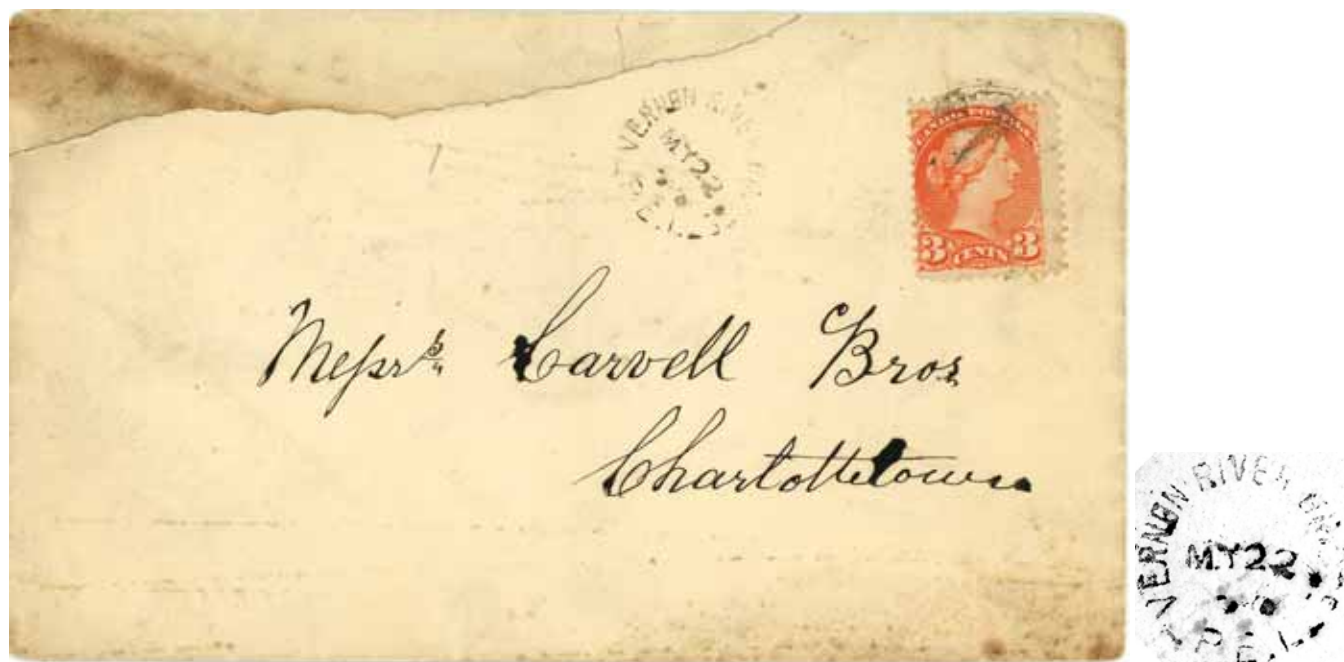 VERNON RIVER
MY 22
P.E.I.
CANADA POSTAGE
3 CENTS 3
Messrs. Carvell Bros
Charlottetown
VERNON RIVER
MY 22
P.E.I.